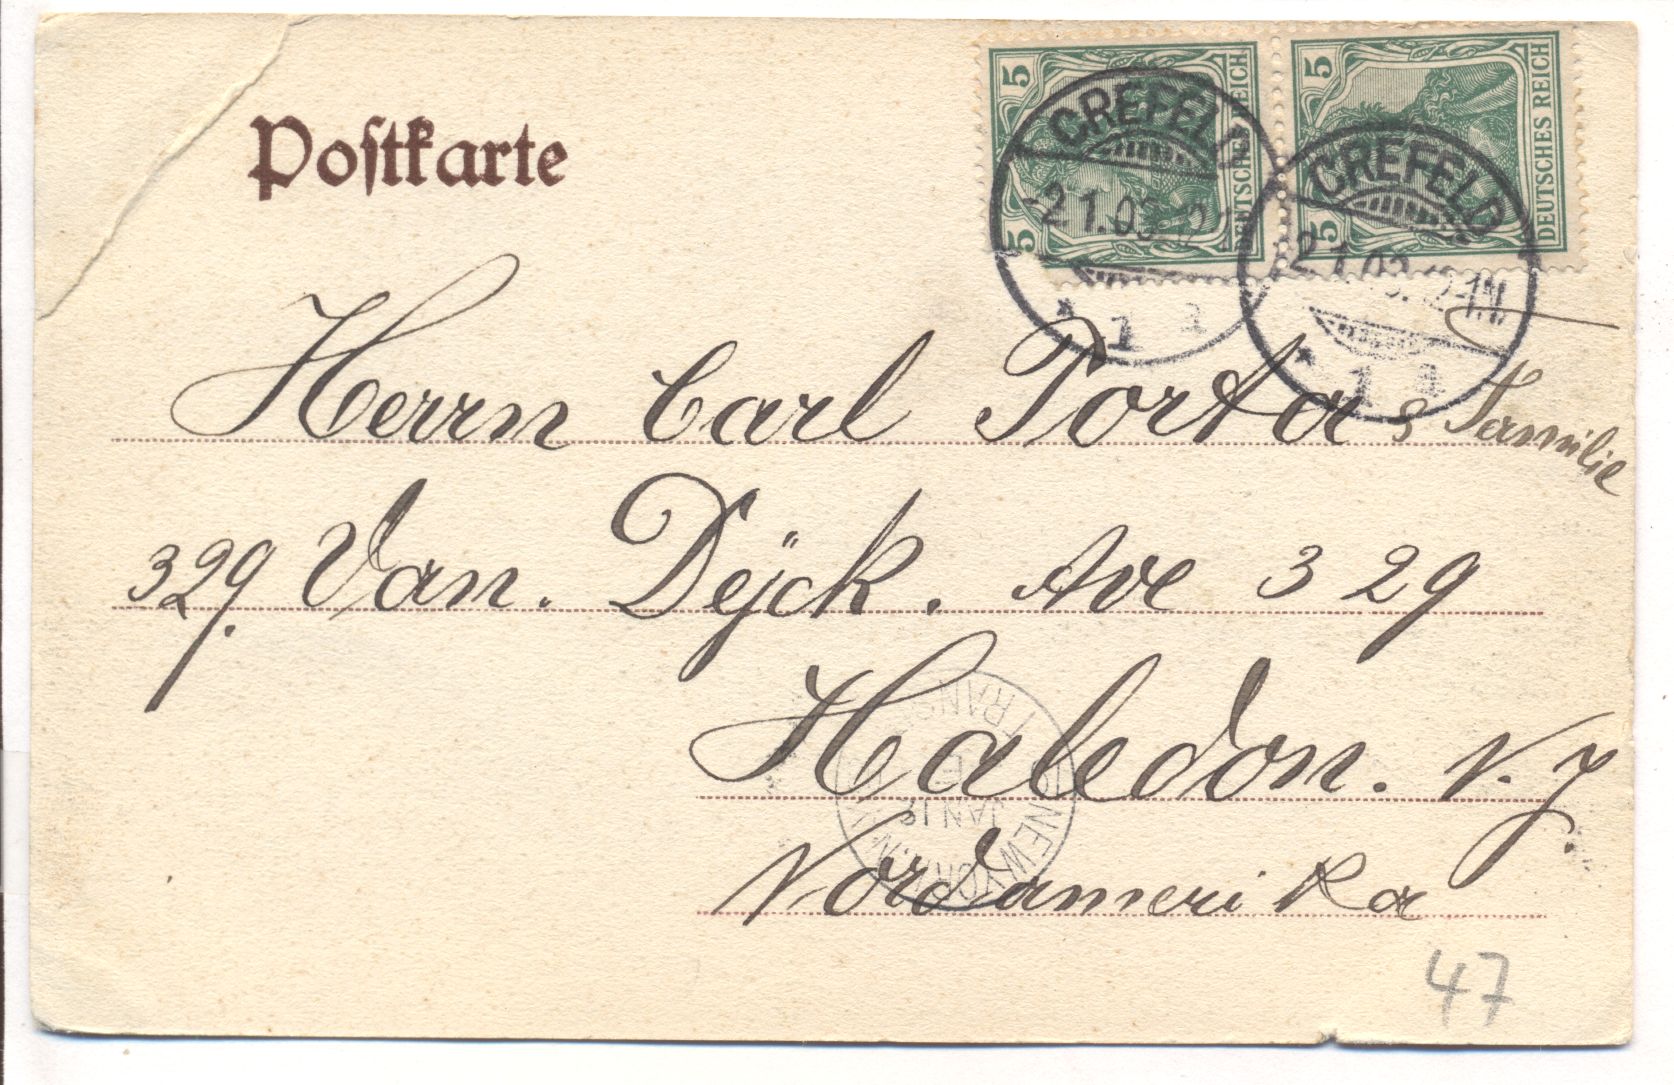 Postkarte
5 DEUTSCHES REICH 5
5 DEUTSCHES REICH 5
CREFELD
-2 1.03
* 1 a
CREFELD
-2 1.03.12-1N.
* 1 a
Herrn Carl Porta & Familie
329 Van. Dÿck. Ave 329
Haledon. N. J.
Nordamerika
NEW YORK, N.
JAN 12
TRANSI
47